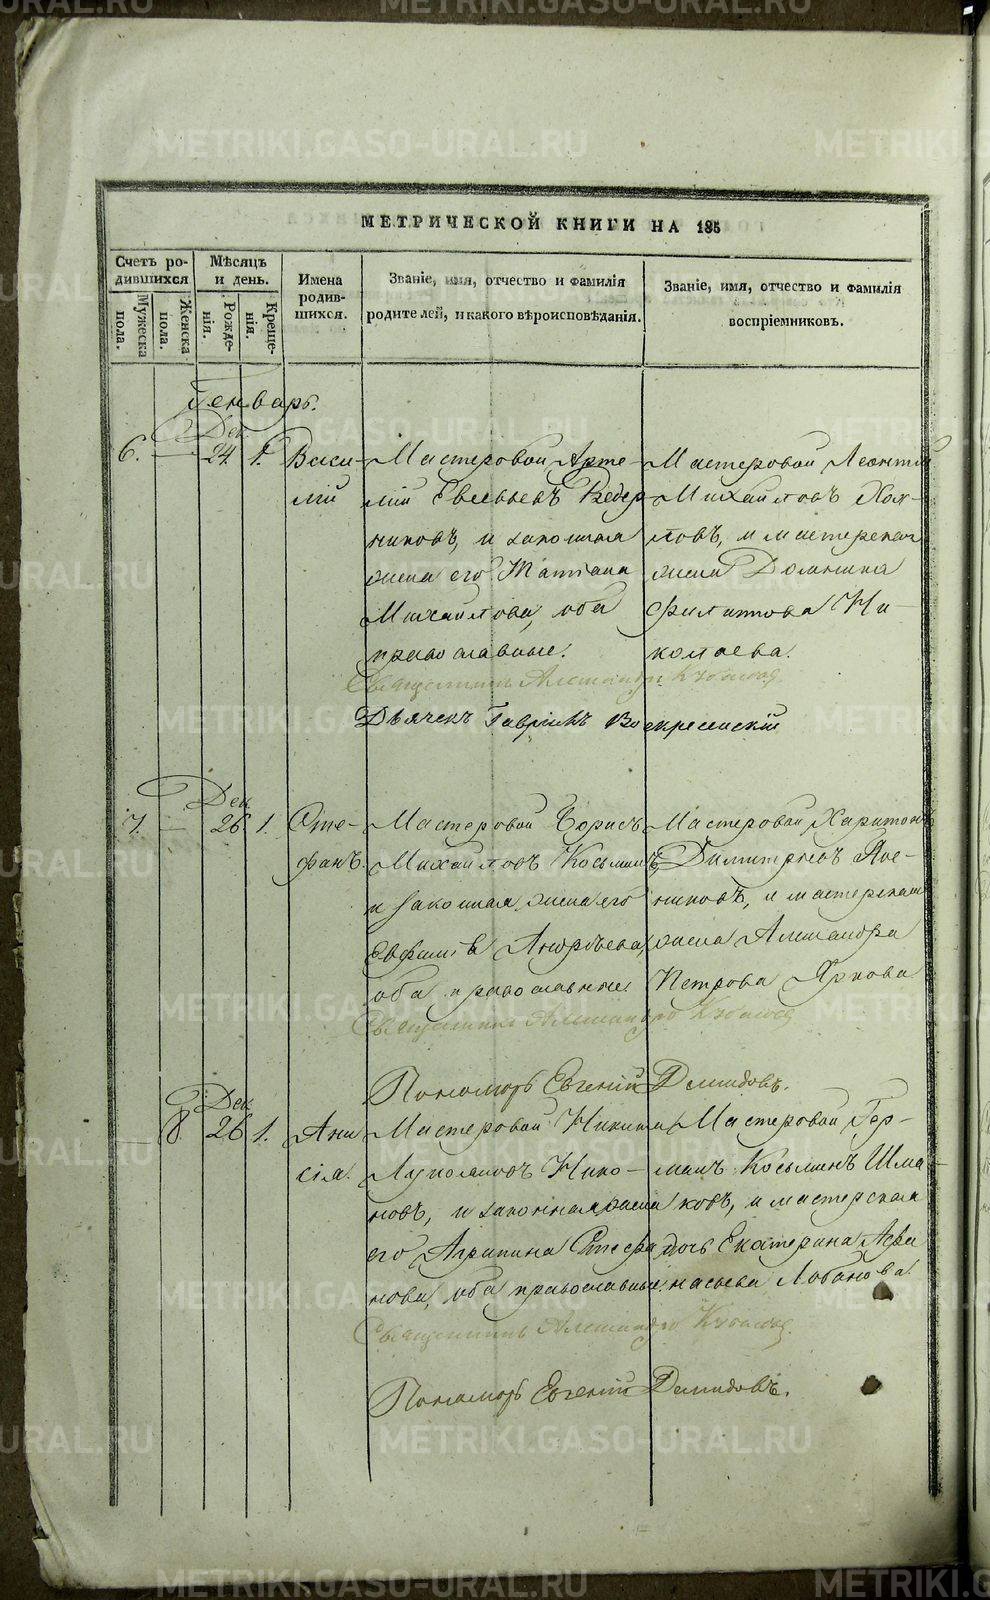 МЕТРИЧЕСКОЙ КНИГИ НА 185
Счетъ ро-
дившихся
Мѣсяцъ
и день.
Мужеска
пола.
Женска
пола.
Рожде-
нія.
Креще-
нія.
Имена
родив-
шихся.
Званіе, имя, отчество и фамилія
родителей, и какого вѣроисповѣданія.
Званіе, имя, отчество и фамилія
воспріемниковъ.
Генварь.
Дек.
6. — 24. 1.
Васи-
лій
Мастеровой Арте-
мій Евсевьевъ Ведер-
никовъ, и законная
жена его Татіана
Михайлова, оба
православные.
Мастеровой Леонтій
Михайловъ
ловъ, и мастерская
жена Домника
Филиппова Ни-
колаева.
Священникъ Александръ
Дьячекъ Гавріилъ Воскресенскій
Дек.
7. — 26. 1.
Сте-
фанъ.
Мастеровой Борисъ
Михайловъ Косьминъ,
и законная жена его
Евфимія Андреева,
оба православные
Мастеровой Харитонъ
Димитріевъ
никовъ, и мастерская
жена Александра
Петрова Яркова
Священникъ Александръ
Пономарь Евгеній Демидовъ.
Дек.
— 8 26 1.
Ани
сія.
Мастеровой Никита
Нико-
новъ, и законная жена
его Агрипина Стефа
нова, оба православные.
Мастеровой Гер-
манъ Косьминъ Шма-
ковъ, и мастерская
дочь Екатерина Афа
насьева Лобанова.
Священникъ Александръ
Пономарь Евгеній Демидовъ.
METRIKI.GASO-URAL.RU